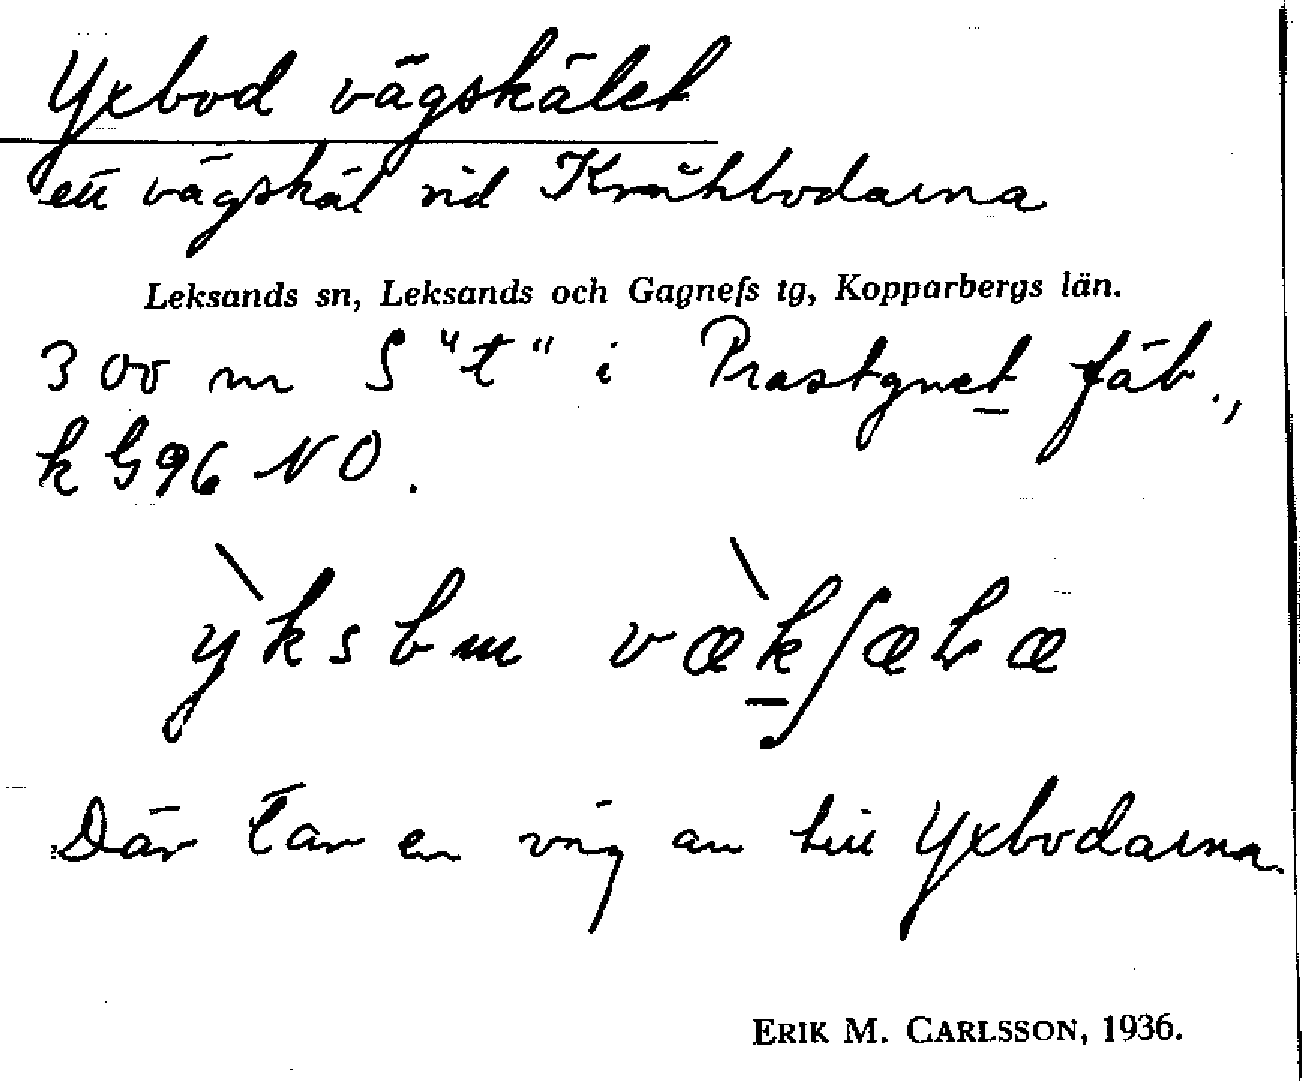 Yxbod vägskälet
ett vägskäl vid Kråkbodarna
Leksands sn, Leksands och Gagnefs tg, Kopparbergs län.
300 m S "t" i Prastgnet fäb.,
k G96 NO.
Där tar en väg av till Yxbodarna.
ERIK M. CARLSSON, 1936.